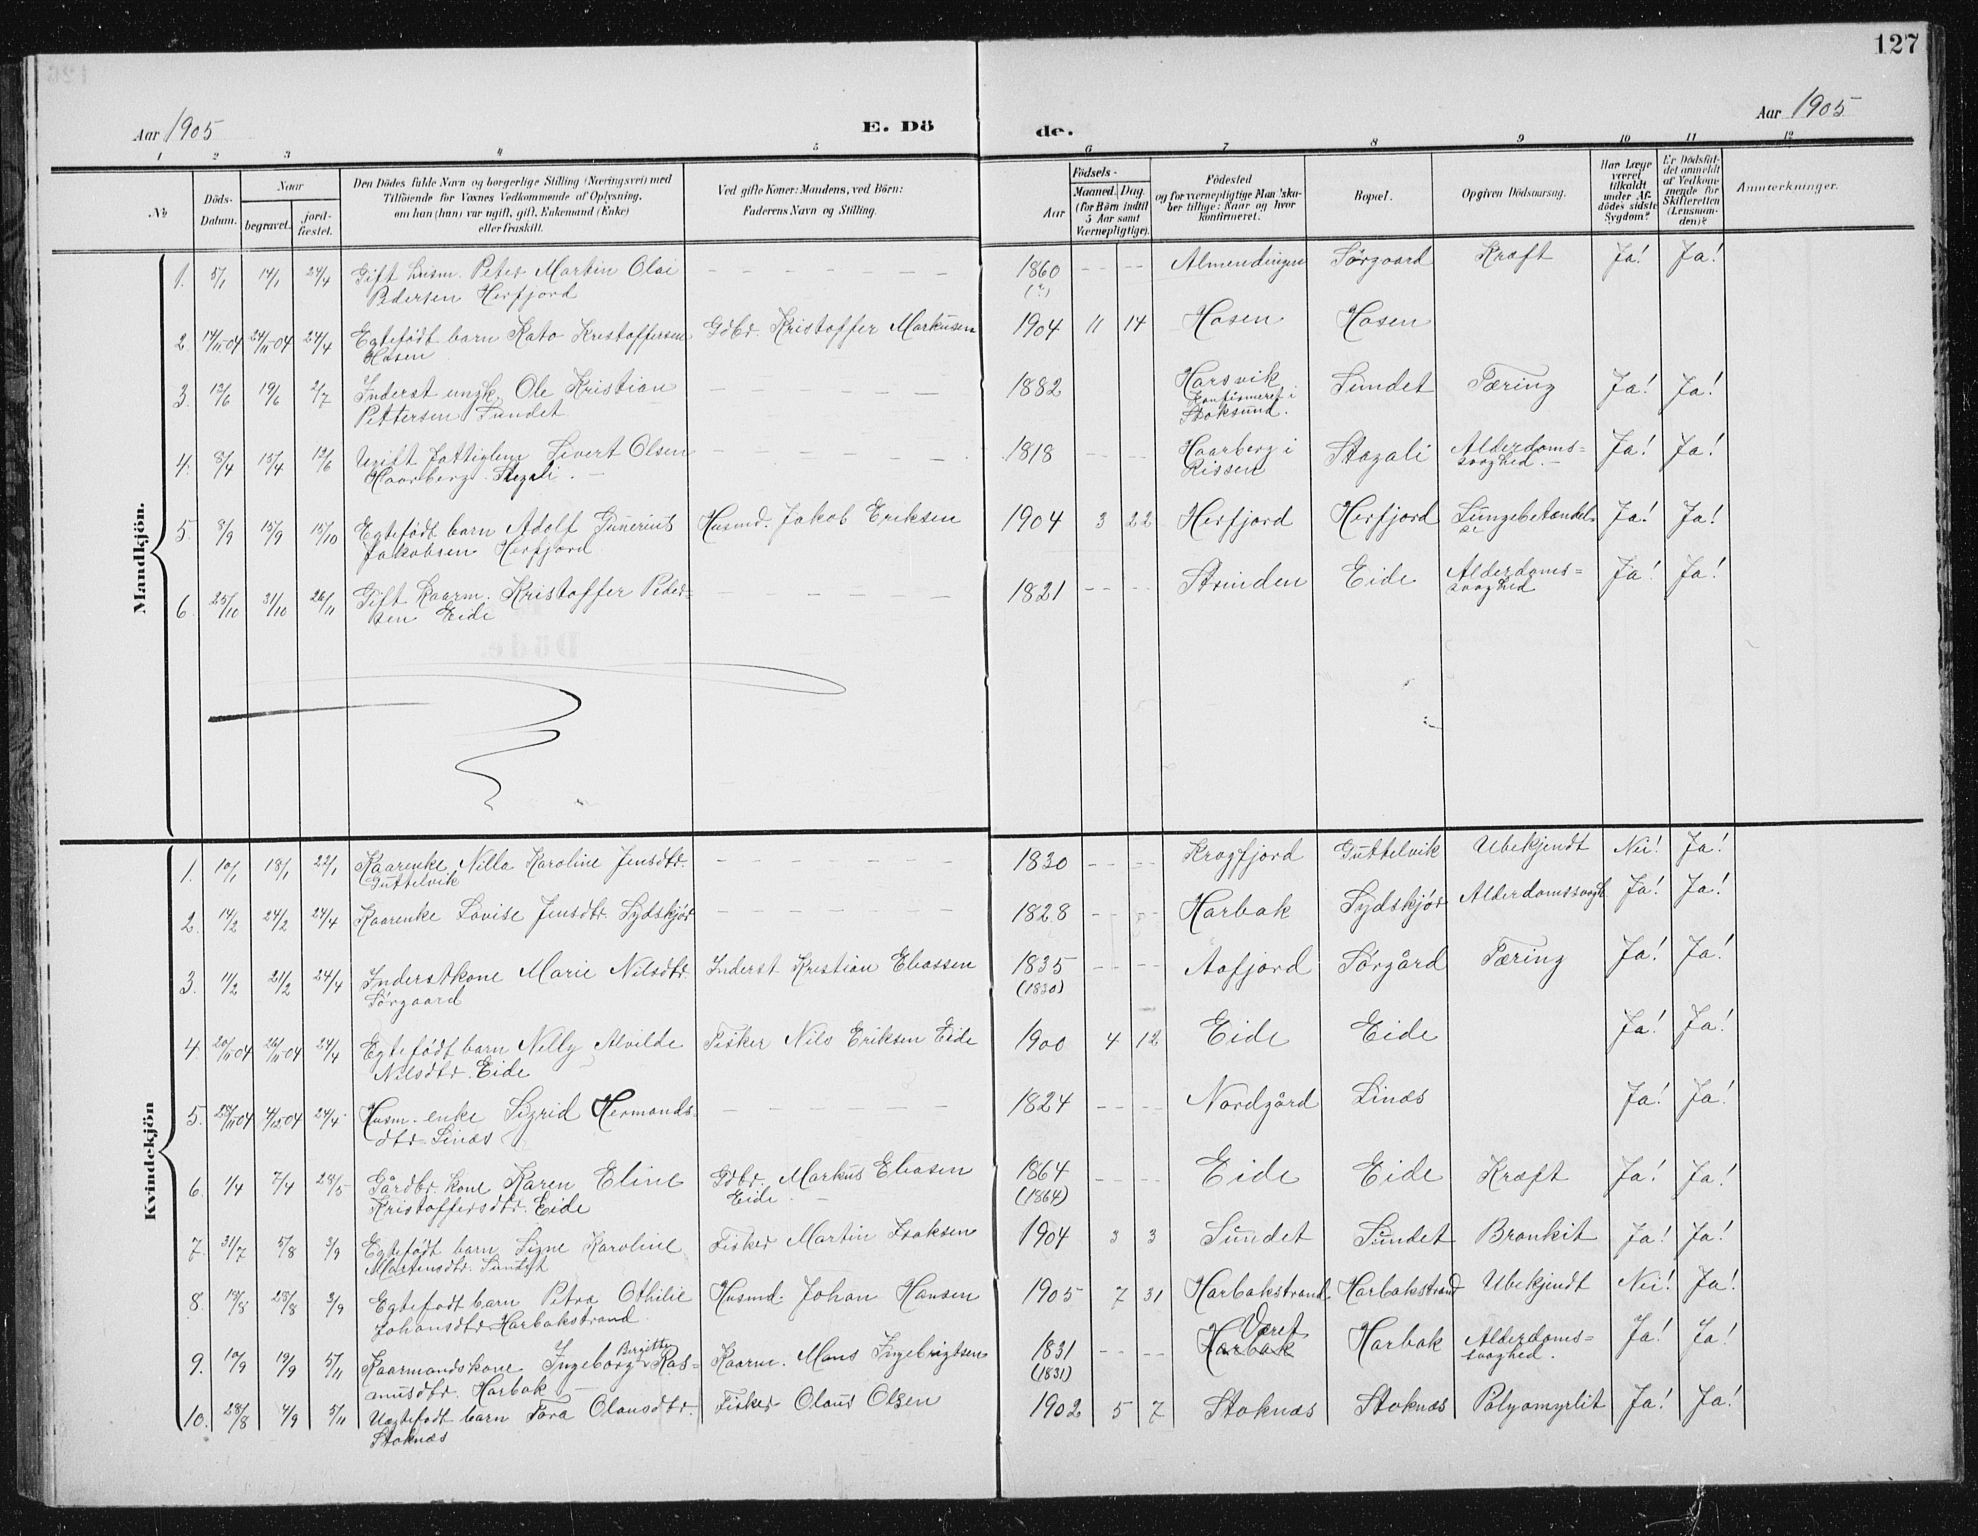 127
Aar 1905 E. Dö de. Aar 1905
1 2 3 4 5 6 7 8 9 10 11 12
№ Döds-Datum. Naar begravet. jord-fæstet. Den Dödes fulde Navn og borgerlige Stilling (Næringsvei) med Tilföiende for Voxnes Vedkommende af Oplysning, om han (hun) var ugift, gift, Enkemand (Enke) eller fraskilt. Ved gifte Koner: Mandens, ved Börn: Faderens Navn og Stilling. Födsels- Aar Maaned. Dag. (for Börn indtil 5 Aar samt Værnepligtige). Födested og for værnepligtige Mandskaber tillige: Naar og hvor konfirmeret. Bopæl. Opgiven Dödsaarsag. Har Læge været tilkaldt under Afdödes sidste Sygdom? Er Dödsfaldet anmeldt af Vedkommende for Skifteretten (Lensmanden)? Anmærkninger.
Mandkjön.
1. 5/1 14/1 24/4 Gift husm. Peter Martin Olai – – – – – – 1860 – – – – Almendingen Sørgaard Kræft Ja! Ja!
Pedersen Herfjord (?)
2 14/11 04 24/11 04 24/4 Egtefødt barn Kato Kristoffersen Gdbr. Kristoffer Markusen 1904 11 14 Hosen Hosen
Hosen
3. 12/6 19/6 2/7 Inderst ungk. Ole Kristian – – – – – – 1882 Harsvik Sundet Tæring Ja! Ja!
Pettersen Sundet Konfirmeret i
Stoksund.
4. 8/4 15/4 12/6 Ugift fattiglem Sivert Olsen – – – – – – 1818 – – – Haarberg i Stagali Alderdoms= Ja! Ja!
Haarberg Stagali. – Rissen svaghed. –
5. 8/9 15/9 15/10 Egtefødt barn Adolf Gunerius Husmd. Jakob Eriksen 1904 3 22 Herfjord Herfjord Lungebetændel= Ja! Ja!
Jakobsen Herfjord se
6. 25/10 31/10 26/11 Gift kaarm. Kristoffer Peder= – – – – – – 1821 – – – – Strinden Eide Alderdoms= Ja! Ja!
sen Eide svaghed
Döde.
Kvindekjön
1. 10/1 18/1 22/1 Kaarenke Nilla Karoline Jensdtr. – – – – – – 1830 – – – – Kragfjord Guttelvik Ubekjendt Nei! Ja!
Guttelvik
2. 14/2 24/2 24/4 Kaarenke Lovise Jensdtr. Sydskjør – – – – – – 1828 – – – Harbak Sydskjør Alderdomssvagh. Ja! Ja!
3. 11/2 21/2 24/4 Inderstkone Marie Nilsdtr. Inderst Kristian Eliassen 1835 – – – – Aafjord Sørgård Tæring Ja! Ja!
Sørgaard (1830)
4. 20/11 04 26/11 04 24/4 Egtefødt barn Nelly Alvilde Fisker Nils Eriksen Eide 1900 4 12 Eide Eide Ja! Ja!
Nilsdtr. Eide
5. 28/11 04 4/12 04 24/4 Husm. enke Sigrid Hermands – – – – – – 1824 – – – – Nordgård Linæs Ja! Ja!
dtr. Linæs
6. 1/4 7/4 28/5 Gårdbr. kone Karen Eline Gdbr. Markus Eliasen 1864 – – – Eide Eide Kræft Ja! Ja!
Kristoffersdtr. Eide Eide – (1864)
7. 31/7 5/8 3/9 Egtefødt barn Signe Karoline Fisker Martin Isaksen 1904 3 3 Sundet Sundet Bronkit Ja! Ja!
Martinsdtr. Sundet
8. 19/8 28/8 3/9 Egtefødt barn Petra Othilie Husmd. Johan Hansen 1905 7 31 Harbakstrand Harbakstrand Ubekjendt Nei! Ja!
Johansdtr. Harbakstrand
9. 10/9 19/9 5/11 Kaarmandskone Ingeborg Birgitte Ras= Kaarm. Mons Ingebrigtsen 1831 – – – – Harbak Været Harbak Alderdoms= Ja! Ja!
amusdtr. Harbak – (1831) svaghed.
10. 28/8 4/9 5/11 Uegtefødt barn Tora Olausdtr. Fisker Olaus Olsen 1902 5 7 Stoknæs Stoknæs Polyomyrlit Ja! Ja!
Stoknæs